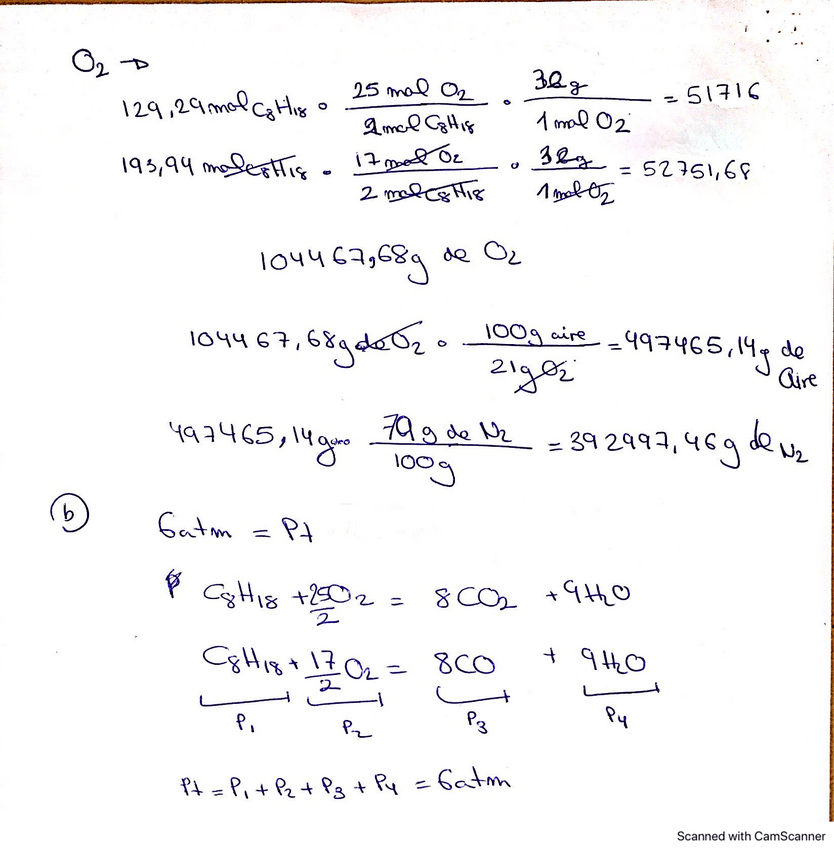 O₂ →
129,29 mol C₈H₁₈ • 25 mol O₂ / 2 mol C₈H₁₈ • 32g / 1 mol O₂ = 51716
193,94 mol C₈H₁₈ • 17 mol O₂ / 2 mol C₈H₁₈ • 32g / 1 mol O₂ = 52751,68
104467,68g de O₂
104467,68g de O₂ • 100g aire / 21g O₂ = 497465,14g de Aire
497465,14g 79g de N₂ / 100g = 392997,46g de N₂
b
6atm = Pt
C₈H₁₈ + 25/2 O₂ = 8CO₂ + 9H₂O
C₈H₁₈ + 17/2 O₂ = 8CO + 9H₂O
P₁ P₂ P₃ P₄
Pt = P₁ + P₂ + P₃ + P₄ = 6atm
Scanned with CamScanner